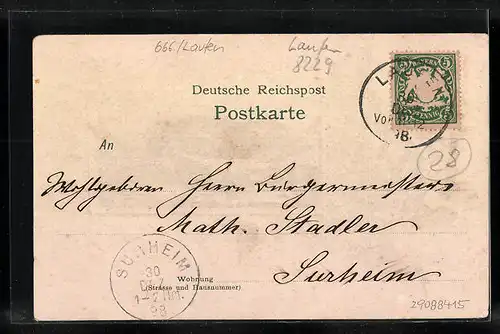 666/Laufen
Laufen
8229
Deutsche Reichspost
Postkarte
BAYERN
5
PFENNIG
LAUFEN
98.
28
An
Wohlgeboren Herrn Bürgermeister
Math. Stadler
Surheim
Wohnung
(Strasse und Hausnummer)
SURHEIM
30
98
29088415